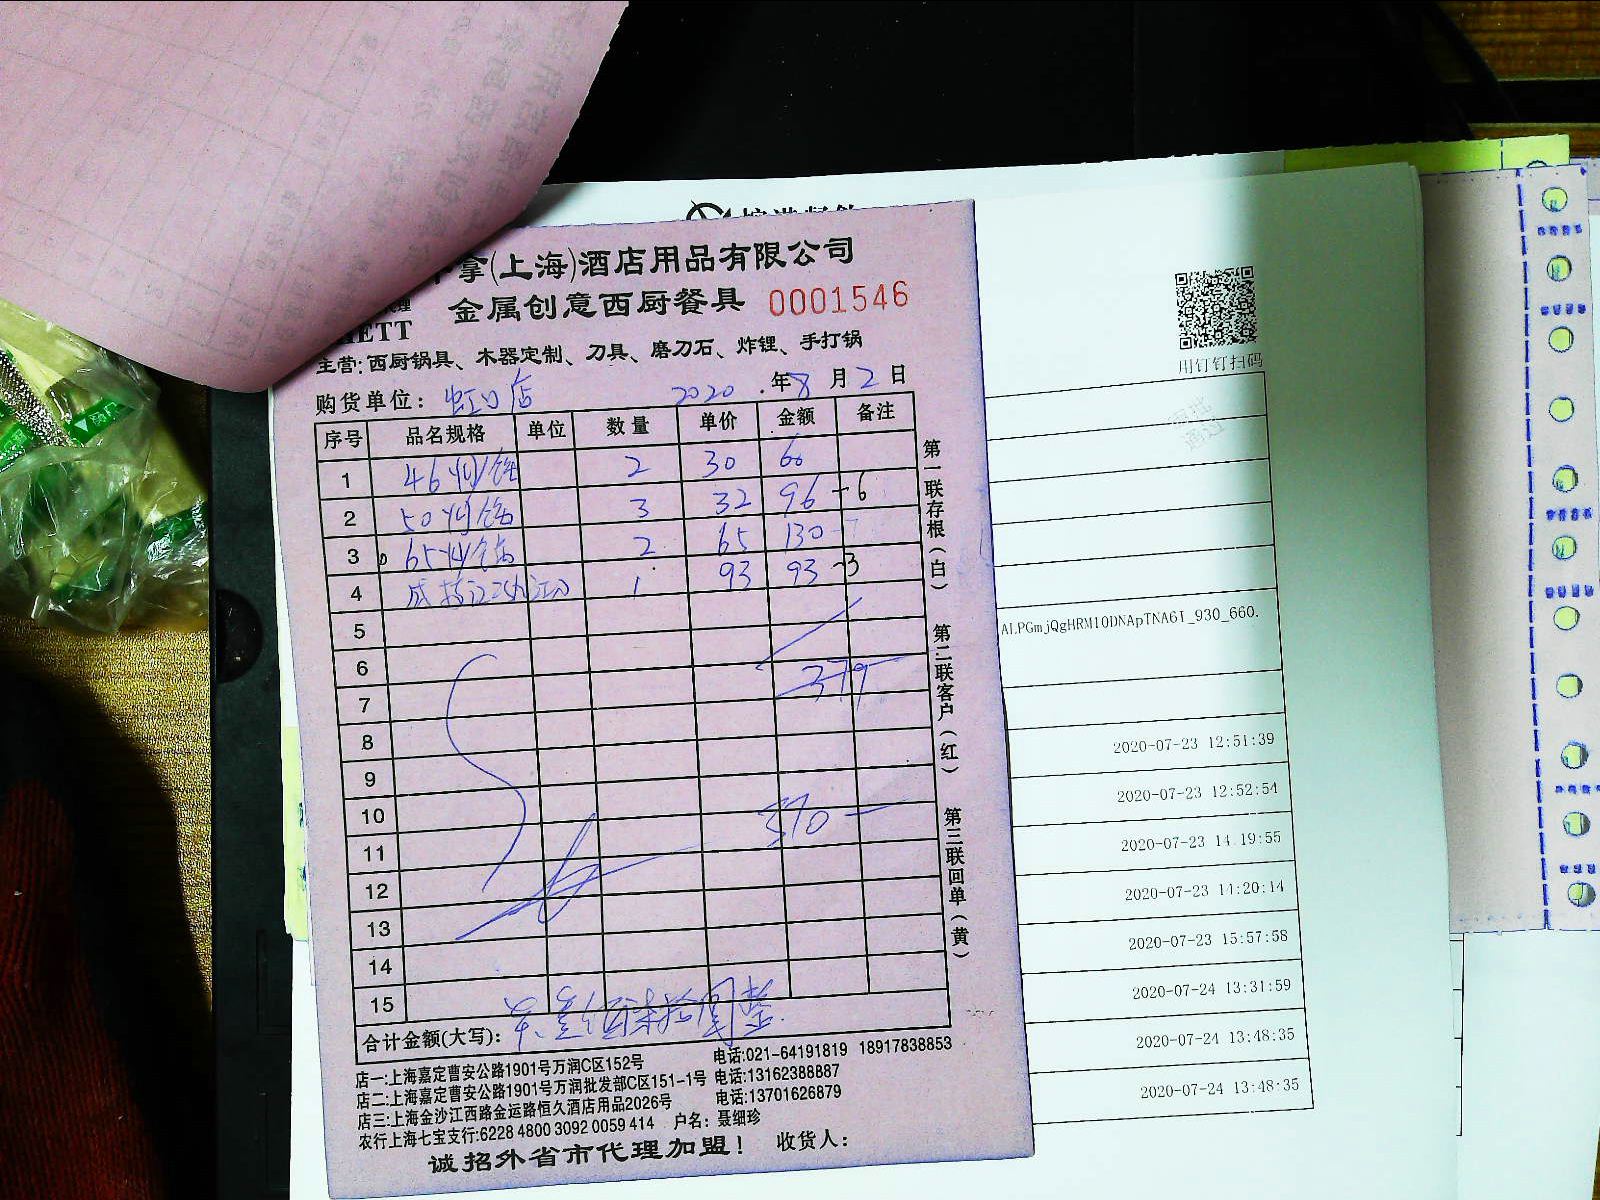 拿(上海)酒店用品有限公司
金属创意西厨餐具 0001546
HETT
主营:西厨锅具、木器定制、刀具、磨刀石、炸锂、手打锅
购货单位: 虹口店 2020.年8月2日
序号 品名规格 单位 数量 单价 金额 备注
1 46 2 30 60
2 50 3 32 96 -6
3 65 2 65 130
4 1 93 93 -3
5
6
7 379
8
9
10 370
11
12
13
14
15
合计金额(大写):
店一:上海嘉定曹安公路1901号万润C区152号 电话:021-64191819 18917838853
店二:上海嘉定曹安公路1901号万润批发部C区151-1号 电话:13162388887
店三:上海金沙江西路金运路恒久酒店用品2026号 电话:13701626879
农行上海七宝支行:6228 4800 3092 0059 414 户名:聂细珍
诚招外省市代理加盟! 收货人:
第一联存根(白)
第二联客户(红)
第三联回单(黄)
用钉钉扫码
ALPGmjQgHRM10DNApTNA6I_930_660.
2020-07-23 12:51:39
2020-07-23 12:52:54
2020-07-23 14:19:55
2020-07-23 14:20:14
2020-07-23 15:57:58
2020-07-24 13:31:59
2020-07-24 13:48:35
2020-07-24 13:48:35